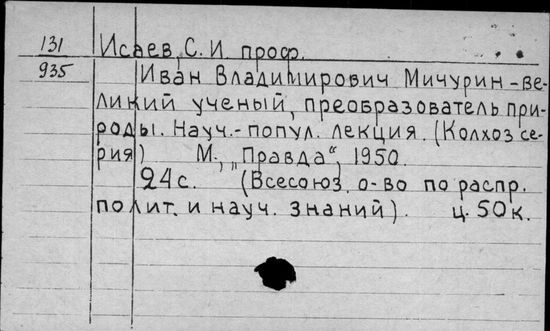 131 Исаев, С. И. проф.
935 Иван Владимирович Мичурин - ве-
ликий ученый, преобразователь при-
роды. Науч.-попул. лекция. (Колхоз се-
рия) М., „Правда“, 1950.
24 с. (Всесоюз. о-во по распр.
полит. и науч. знаний). ц. 50 к.